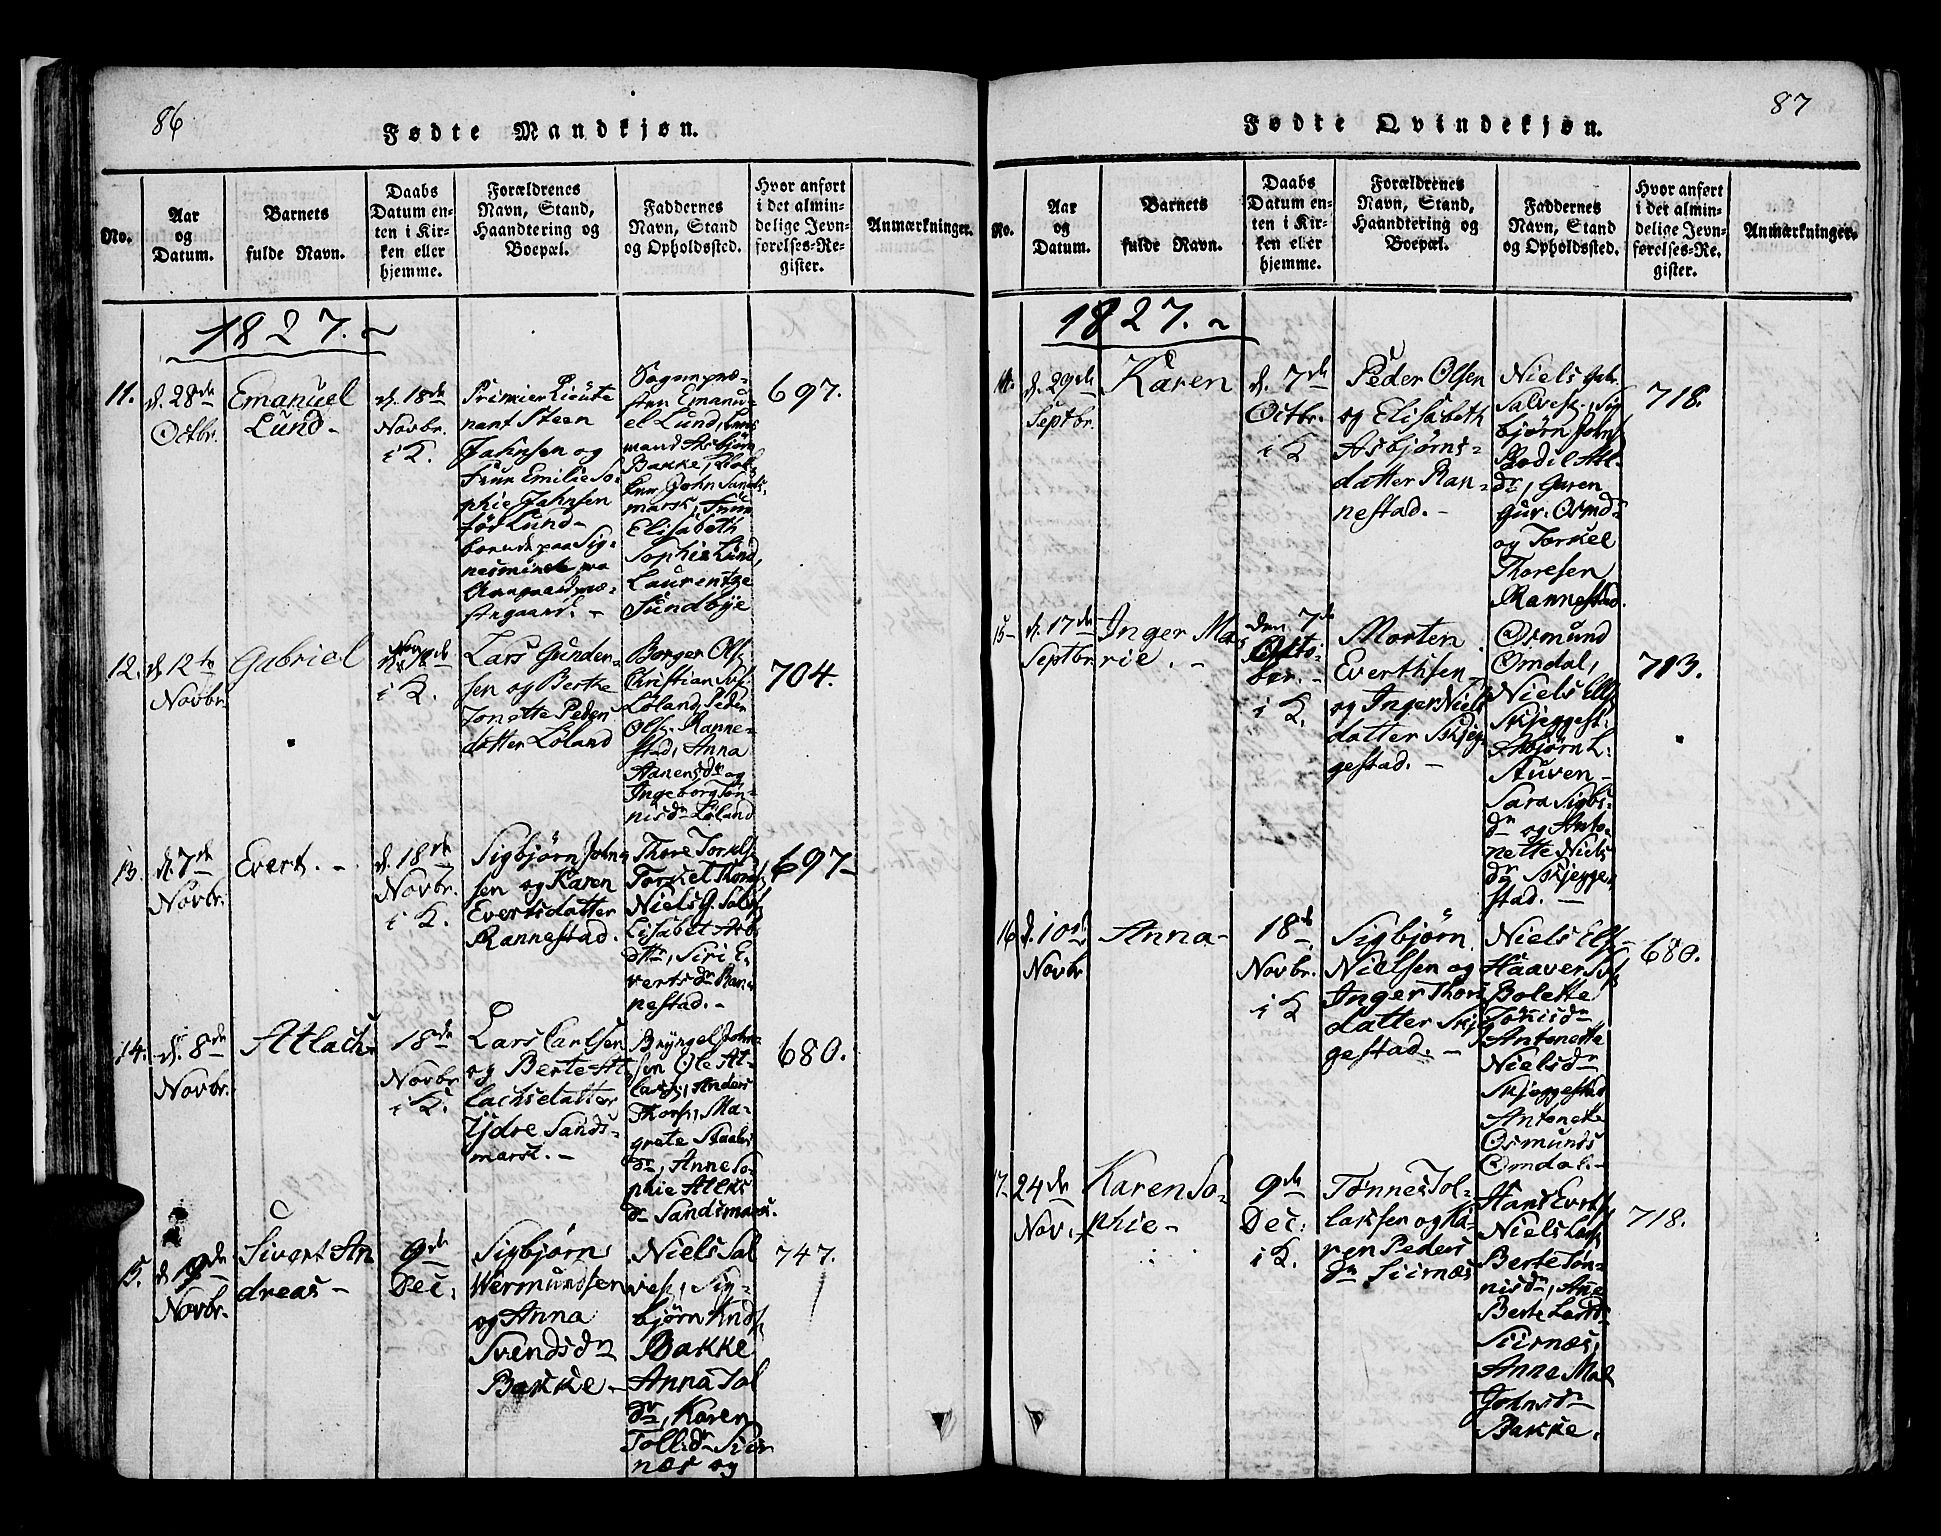 86
Fødte Mandkjøn.
No.
Aar
og
Datum.
Barnets
fulde Navn.
Daabs
Datum en-
ten i Kir-
ken eller
hjemme.
Forældrenes
Navn, Stand,
Haandtering og
Boepæl.
Faddernes
Navn, Stand
og Opholdssted.
Hvor anført
i det almin-
delige Jevn-
førelses-Re-
gister.
Anmærkninger.
1827.
11.
d. 28de
Octbr.
Emanuel
Lund
d. 18de
Novbr.
i K.
Primier Lieute
nant Steen
Jahnsen og
Frue Emilie So-
phie Jahnsen
fød Lund
boende paa Sig-
nesminde
Sogenpræ-
sten Emanu-
el Lund,
mand Asbjørn
Bakke,
John Sands-
mark, Frue
Elisabeth
Sophie Lund,
Laurentze
Sundbye
697.
12.
d. 12te
Novbr.
Gabriel
i K.
Lars Gunder-
sen og Berthe
Tonette Peders
datter Løland
Borger Ols.
Christian
Løland, Peder
Ols. Ranne-
stad, Anna
Aanensdr og
Ingeborg Tøn-
nisdr Løland
704.
13.
d. 7de
Novbr.
Evert.
d. 18de
Novbr.
i K.
Sigbjørn John
sen og Karen
Evertsdatter
Rannestad.
Thore Torkels.
Torkel Thores.
Niels G. Salv.
Lisabet Asb
dttr, Siri E-
vertsdr Ran-
nestad.
697
14.
d. 8de
Novbr.
Atlach
18de
Novbr
i K.
Lars Carlsen
og Berte At
lachsdatter
Ydre Sands-
mark.
Bryngel John-
sen Ole At-
lachs., Anders
Thors., Ma-
grete Staales
dr, Anne So-
phie Atlaks
dr Sandsmark.
680.
15.
d. 9de
Novbr.
Sivert An
dreas
9de
Dec.
Sigbjørn
Wermundsen
og Anna
Svendsdr
Bakke
Niels Sal
ves., Sig-
bjørn Knds.
Bakke
Anna Sal
dr, Karen
Tollisdr Siir
næs og
747.
87
Fødte Qvindekjøn.
No.
Aar
og
Datum.
Barnets
fulde Navn.
Daabs
Datum en-
ten i Kir-
ken eller
hjemme.
Forældrenes
Navn, Stand,
Haandtering og
Boepæl.
Faddernes
Navn, Stand
og Opholdssted.
Hvor anført
i det almin-
delige Jevn-
førelses-Re-
gister.
Anmærkninger.
1827.
14.
d. 29de
Septbr.
Karen
d. 7de
Octbr.
i K
Peder Olsen
og Elisabeth
Asbjørns-
datter Ran-
nestad.
Niels Gabr.
Salves., Sig
bjørn Johns.
Bodil Atl.
dr, Garen
Gur. Osmdr
og Torkel
Thoresen
Rannestad.
718.
15
d. 17de
Septbr
Inger Ma
rie.
den 7de
Octo-
ber.
i K.
Morten
Everthsen
og Inger Niels
datter Skjeg
gestad.
Osmund
Omdal,
Niels Ells.
Skjeggest.
Asbjørn L.
Stuven
Sara Sigbs.
dr og Anto-
nette Niels
dr Skjegge-
stad.
713.
16
d. 10de
Novbr
Anna
18de
Novbr.
i K
Sigbjørn
Nielsen og
Inger Thors
datter Skjeg
gestad.
Niels Ells.
Haaver
Bolette
Antonette
Nielsdr
Skjeggestad
Antonette
Osmunds
Omdal.
680.
17.
24de
Nov.
Karen So-
phie
9de
Dec.
i K.
Tønnes Tol-
laksen og Ka-
ren Peders
dr Siirnæs
Hans Everts.
Niels Lars.
Berte Tøn-
nisdr, Ane
Berte Larsdr
Siirnæs,
Anne Mal
Johnsdr
Bakke.
718.